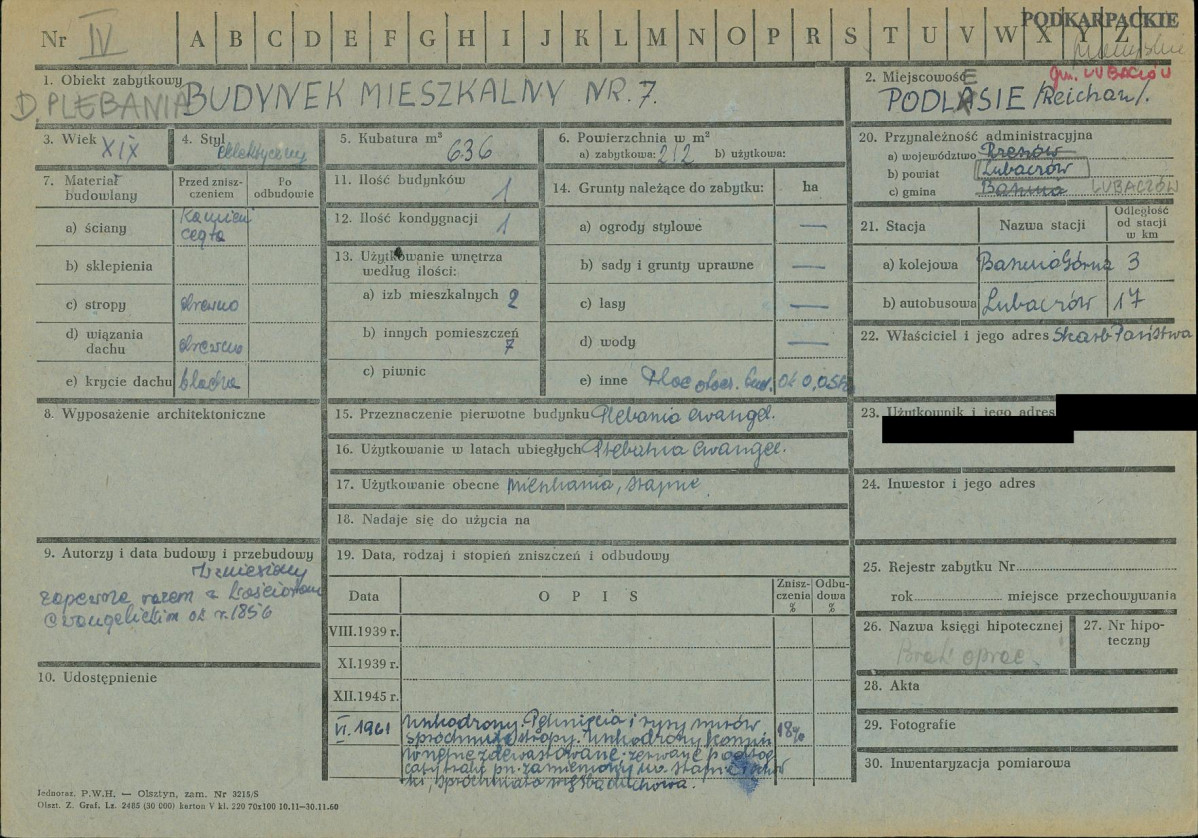 PODKARPACKIE
Nr IV A B C D E F G H I J K L M N O P R S T U V W X Y Z
gm. LUBACZÓW
1. Obiekt zabytkowy
D. PLEBANIA BUDYNEK MIESZKALNY NR. 7.
2. Miejscowość
PODLASIE /Reichau/.
3. Wiek XIX
4. Styl eklektyczny
5. Kubatura m³ 636
6. Powierzchnia w m²
a) zabytkowa: 212 b) użytkowa:
20. Przynależność administracyjna
a) województwo Rzeszów
b) powiat Lubaczów
c) gmina LUBACZÓW
7. Materiał budowlany
Przed zniszczeniem
Po odbudowie
a) ściany Kamień cegła
b) sklepienia
c) stropy drewno
d) wiązania dachu drewno
e) krycie dachu blacha
11. Ilość budynków 1
12. Ilość kondygnacji 1
13. Użytkowanie wnętrza według ilości:
a) izb mieszkalnych 2
b) innych pomieszczeń 7
c) piwnic
14. Grunty należące do zabytku: ha
a) ogrody stylowe —
b) sady i grunty uprawne —
c) lasy —
d) wody —
e) inne Plac obocz. bud. ok 0,05h
21. Stacja Nazwa stacji Odległość od stacji w km
a) kolejowa Basznia Górna 3
b) autobusowa Lubaczów 17
22. Właściciel i jego adres Skarb Państwa
8. Wyposażenie architektoniczne
15. Przeznaczenie pierwotne budynku Plebania ewangel.
16. Użytkowanie w latach ubiegłych Plebania ewangel.
17. Użytkowanie obecne Mieszkania, stajnie
18. Nadaje się do użycia na
23. Użytkownik i jego adres
24. Inwestor i jego adres
9. Autorzy i data budowy i przebudowy
Wzniesiony
zapewne razem z kościołem
ewangelickim ok r. 1856
10. Udostępnienie
19. Data, rodzaj i stopień zniszczeń i odbudowy
Data OPIS Zniszczenia % Odbudowa %
VIII.1939 r.
XI.1939 r.
XII.1945 r.
VI. 1961 Uszkodzony. Pęknięcia i rysy murów 18%
spróchniałe stropy. Uszkodzony komin
wnętrze zdewastowane - zerwane podłogi
cały trakt pn. zamieniony na stajnie
spróchniała więźba dachowa.
25. Rejestr zabytku Nr
rok miejsce przechowywania
26. Nazwa księgi hipotecznej
Brak oprac.
27. Nr hipoteczny
28. Akta
29. Fotografie
30. Inwentaryzacja pomiarowa
Jednoraz. P.W.H. — Olsztyn, zam. Nr 3215/S
Olszt. Z. Graf. Lz. 2485 (30 000) karton V kl. 220 70x100 10.11—30.11.60